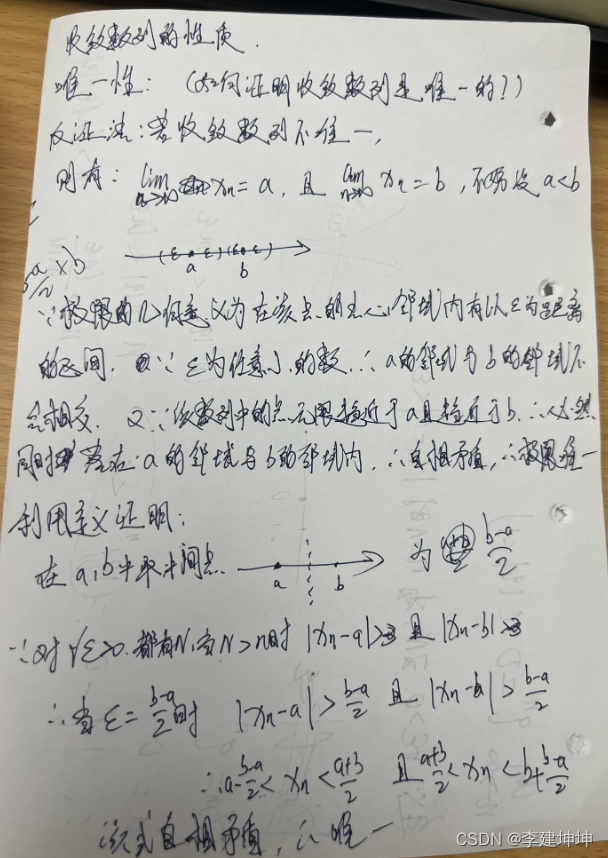 收敛数列的性质.
唯一性: (如何证明收敛数列是唯一的?)
反证法: 若收敛数列不唯一,
则有: lim n→∞ xn = a, 且 lim n→∞ xn = b, 不妨设 a<b
(ε ε)(ε ε)
a b
∵极限的几何意义为在该点的去心邻域内有以ε为距离
的区间. ∵ ε为任意小的数, ∴ a的邻域与b的邻域不
会相交. 又∵该数列中的点无限接近于a且接近于b. ∴必然
同时落在a的邻域与b的邻域内, ∴自相矛盾, ∴极限唯一
利用定义证明:
在a,b中取中间点 a b 为 (b-a)/2
∵对∀ε>0. 都有N, 当N>n时 |xn-a|> 且 |xn-b|>
∴当 ε= (b-a)/2 时 |xn-a| > (b-a)/2 且 |xn-b| > (b-a)/2
∴ a-(b-a)/2 < xn < (a+b)/2 且 (a+b)/2 < xn < b+(b-a)/2
该式自相矛盾, ∴唯一
CSDN @李建坤坤